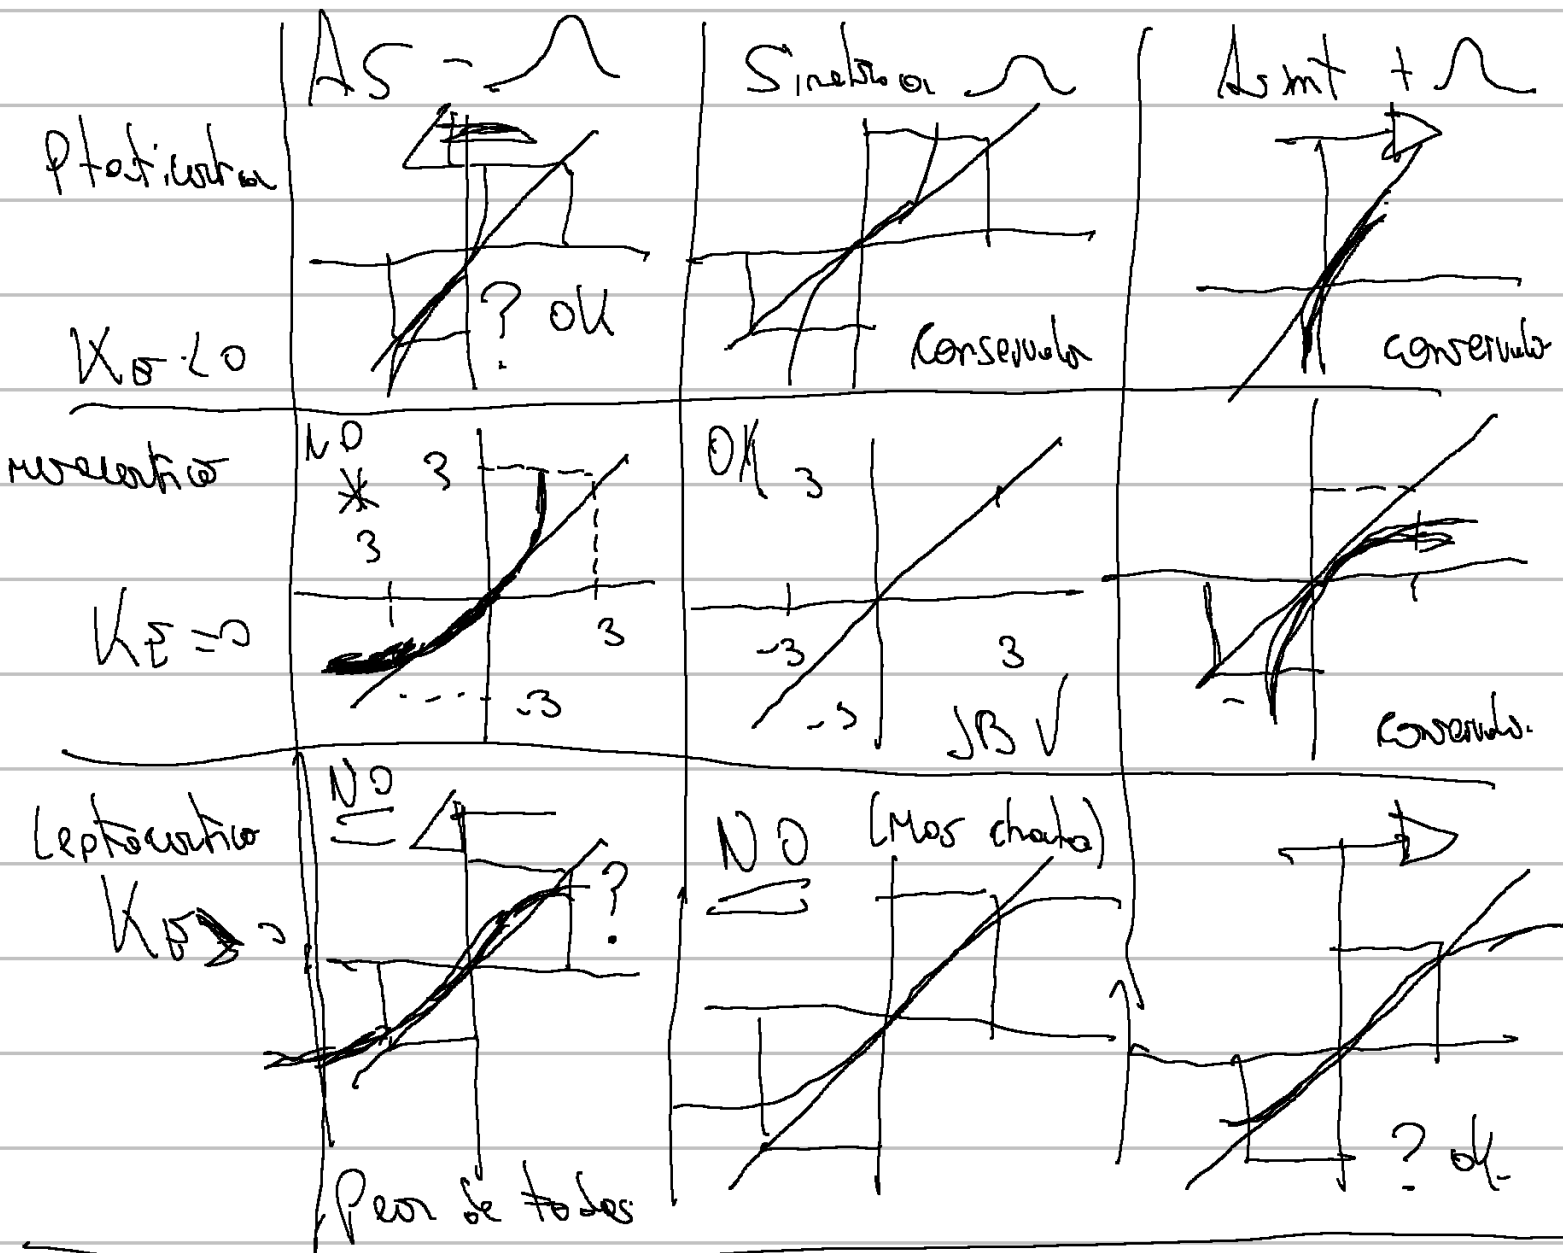 AS -
Simetrica
Asmt +
Platicurtica
KE < 0
? OK
Conservador
conservador
mesocurtica
NO
*
3
3
3
-3
KE = 0
OK
3
-3
3
-3
JB √
-
Conservador.
Leptocurtica
KE > 0
NO
?
Peor de todos
NO (Mas chata)
? ok.